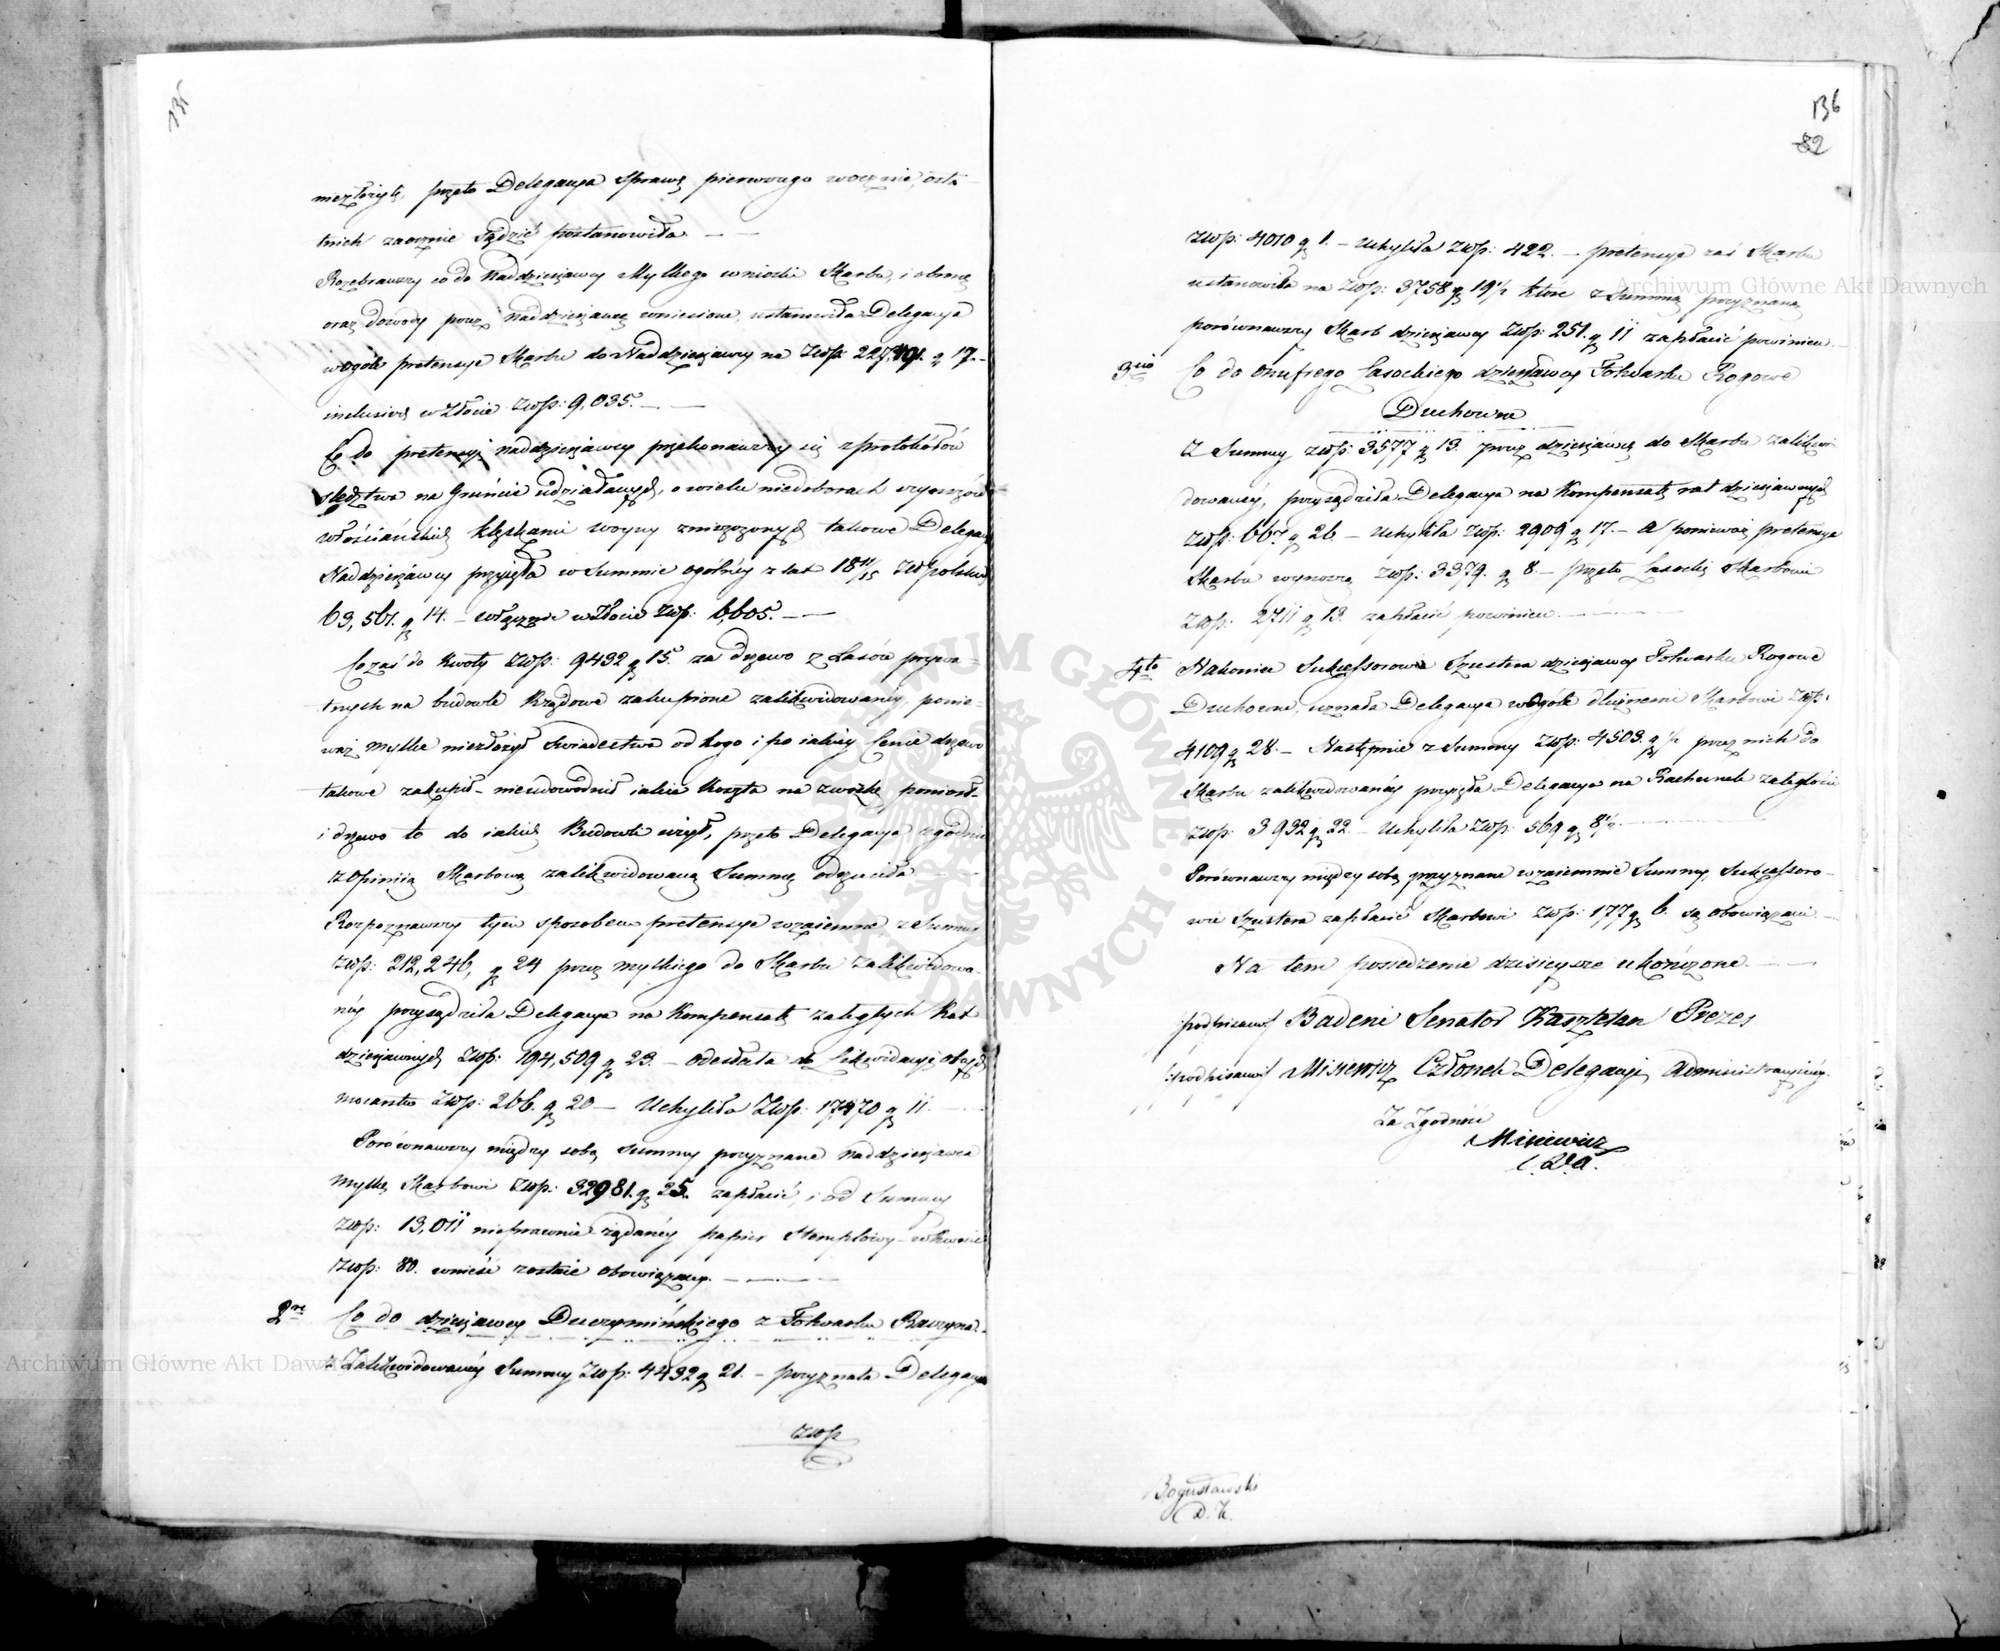 135
niezłożyły, przeto Delegacya sprawę pierwszego wocznie, osta-
tnich zaocznie sądzić postanowiła —
Rozebrawszy co do Naddzierżawcy Mylkego wnioski Skarbu, i obronę
oraz dowody przez naddzierżawcę wniesione, ustanowiła Delegacya
wogóle pretensye Skarbu do Naddzierżawcy na Złłp: 227,491. g 17.—
inclusive w Złocie Złłp: 9,035. —
Co do pretensyi naddzierżawcy przekonawszy się z protokółów
śledztwa na Gruncie udziałanych, o wielu niedoborach czynszów
włościańskich klęskami woyny zniszczonych takowe Delegacya
Naddzierżawcy przyięła w Summie ogólnéy z lat 18 11/15 Złł polskich
63,561. g 14. — włącznie w Złocie Złłp: 6,605. —
Co zaś do kwoty Złłp: 9432 g 15. za drzewo z Lasów prywa-
tnych na budowle Rządowe zakupione zalikwidowanéy, ponie-
waż Mylke niezłożył świadectwa od kogo i po iakiéy Cenie drzewo
takowe zakupił — nieudowodnił iakie koszta na zwózkę poniosł —
i drzewo to do iakich Budowli użył, przeto Delegacya zgodnie
z opinią Skarbową zalikwidowaną Summę odrzuciła —
Rozpoznawszy tym sposobem pretensye wzaiemne z Summy
Złłp: 212,246, g 24 przez Mylkiego do Skarbu zalikwidowa-
néy przysądziła Delegacya na Kompensatę zaległych Rat
dzierżawnych Złłp: 194,509 g 23. — odesłała do Likwidacyi obcych
mocarstw Złłp: 266. g 20 — Uchyliła Złłp: 17470 g 11. —
Porównawszy między sobą Summy przyznane naddzierżawca
Mylke Skarbowi Złłp: 32981. g 25. zapłacić, i od Summy
Złłp: 13,011 nieprawnie żądanéy papier Stemplowy w kwocie
Złłp: 80. wnieść zostaie obowiązany. —
2re Co do dzierżawcy Duczymińskiego z Folwarku
z Zalikwidowanéy Summy Złłp: 4432 g 21. — przyznała Delegacya
Złłp
136
82
Złłp: 4010 g 1. — Uchyliła Złłp: 422. — pretensye zaś Skarbu
ustanowiła na Złłp: 3758 g 19 1/2 które z Summą przyznaną
porównawszy Skarb dzierżawcy Złłp: 251. g 11 zapłacić powinien. —
3tio Co do Onufrego Lasockiego dzierżawcy Folwarku Rogowo
Duchowne
Z Summy Złłp: 3577 g 13. przez dzierżawcę do Skarbu zalikwi
dowanéy, przysądziła Delegacya na Kompensatę rat dzierżawnych
Złłp: 667 g 26. — Uchyliła Złłp: 2909 g 17. — A ponieważ pretensya
Skarbu wynoszą Złłp: 3379. g 8. — przeto Lasocki Skarbowi
Złłp: 2711 g 13. zapłacić powinien. —
4to Nakoniec Sukcessorowie Szustera dzierżawcy Folwarku Rogowo
Duchowne, uznała Delegacya wogóle dłużnemi Skarbowi Złłp:
4109 g 28. — Następnie z Summy Złłp: 4503. g 1/2 przez nich do
Skarbu zalikwidowanéy przyięła Delegacya na Rachunek zaległości
Złłp: 3932 g 22. — Uchyliła Złłp: 569 g 8 1/2. —
Porównawszy między sobą przyznane wzaiemnie Summy, Sukcessoro-
wie Szustera zapłacić Skarbowi Złłp: 177 g 6. są obowiązani. —
Na tem posiedzenie dzisieysze ukończone. —
/podpisano/ Badeni Senator Kasztelan Prezes
/podpisano/ Misiewicz Członek Delegacyi Administracyinéy.
Za Zgodność
Misiewicz
Bogusławski
D. K.
Archiwum Główne Akt Dawnych
Archiwum Główne Akt Dawnych
ARCHIWUM GŁÓWNE AKT DAWNYCH